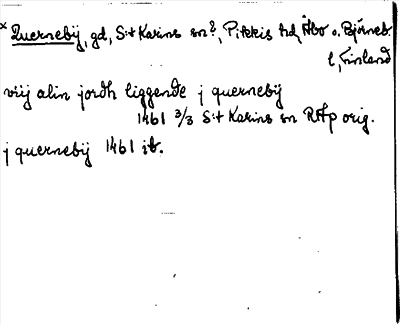 × Quernebÿ, gd, S:t Karins sn?, Pikkis hd, Åbo o. Björneb.
l, Finland
viij alin jordh liggende j quernebÿ
1461 3/3 S:t Karins sn RAp orig.
j quernebÿ 1461 ib.